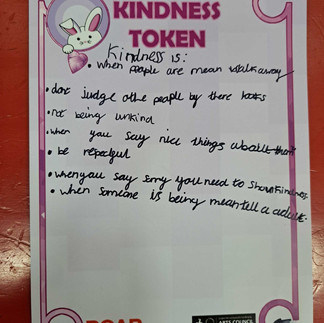 KINDNESS
TOKEN
Kindness is:
• when people are mean walk away
• dont judge othe people by there looks
• not being unkind
• when you say nice things about them
• be respecful
• when you say sorry you need to show kindness
• when someone is being mean tell a adult.
ROAR
ARTS COUNCIL